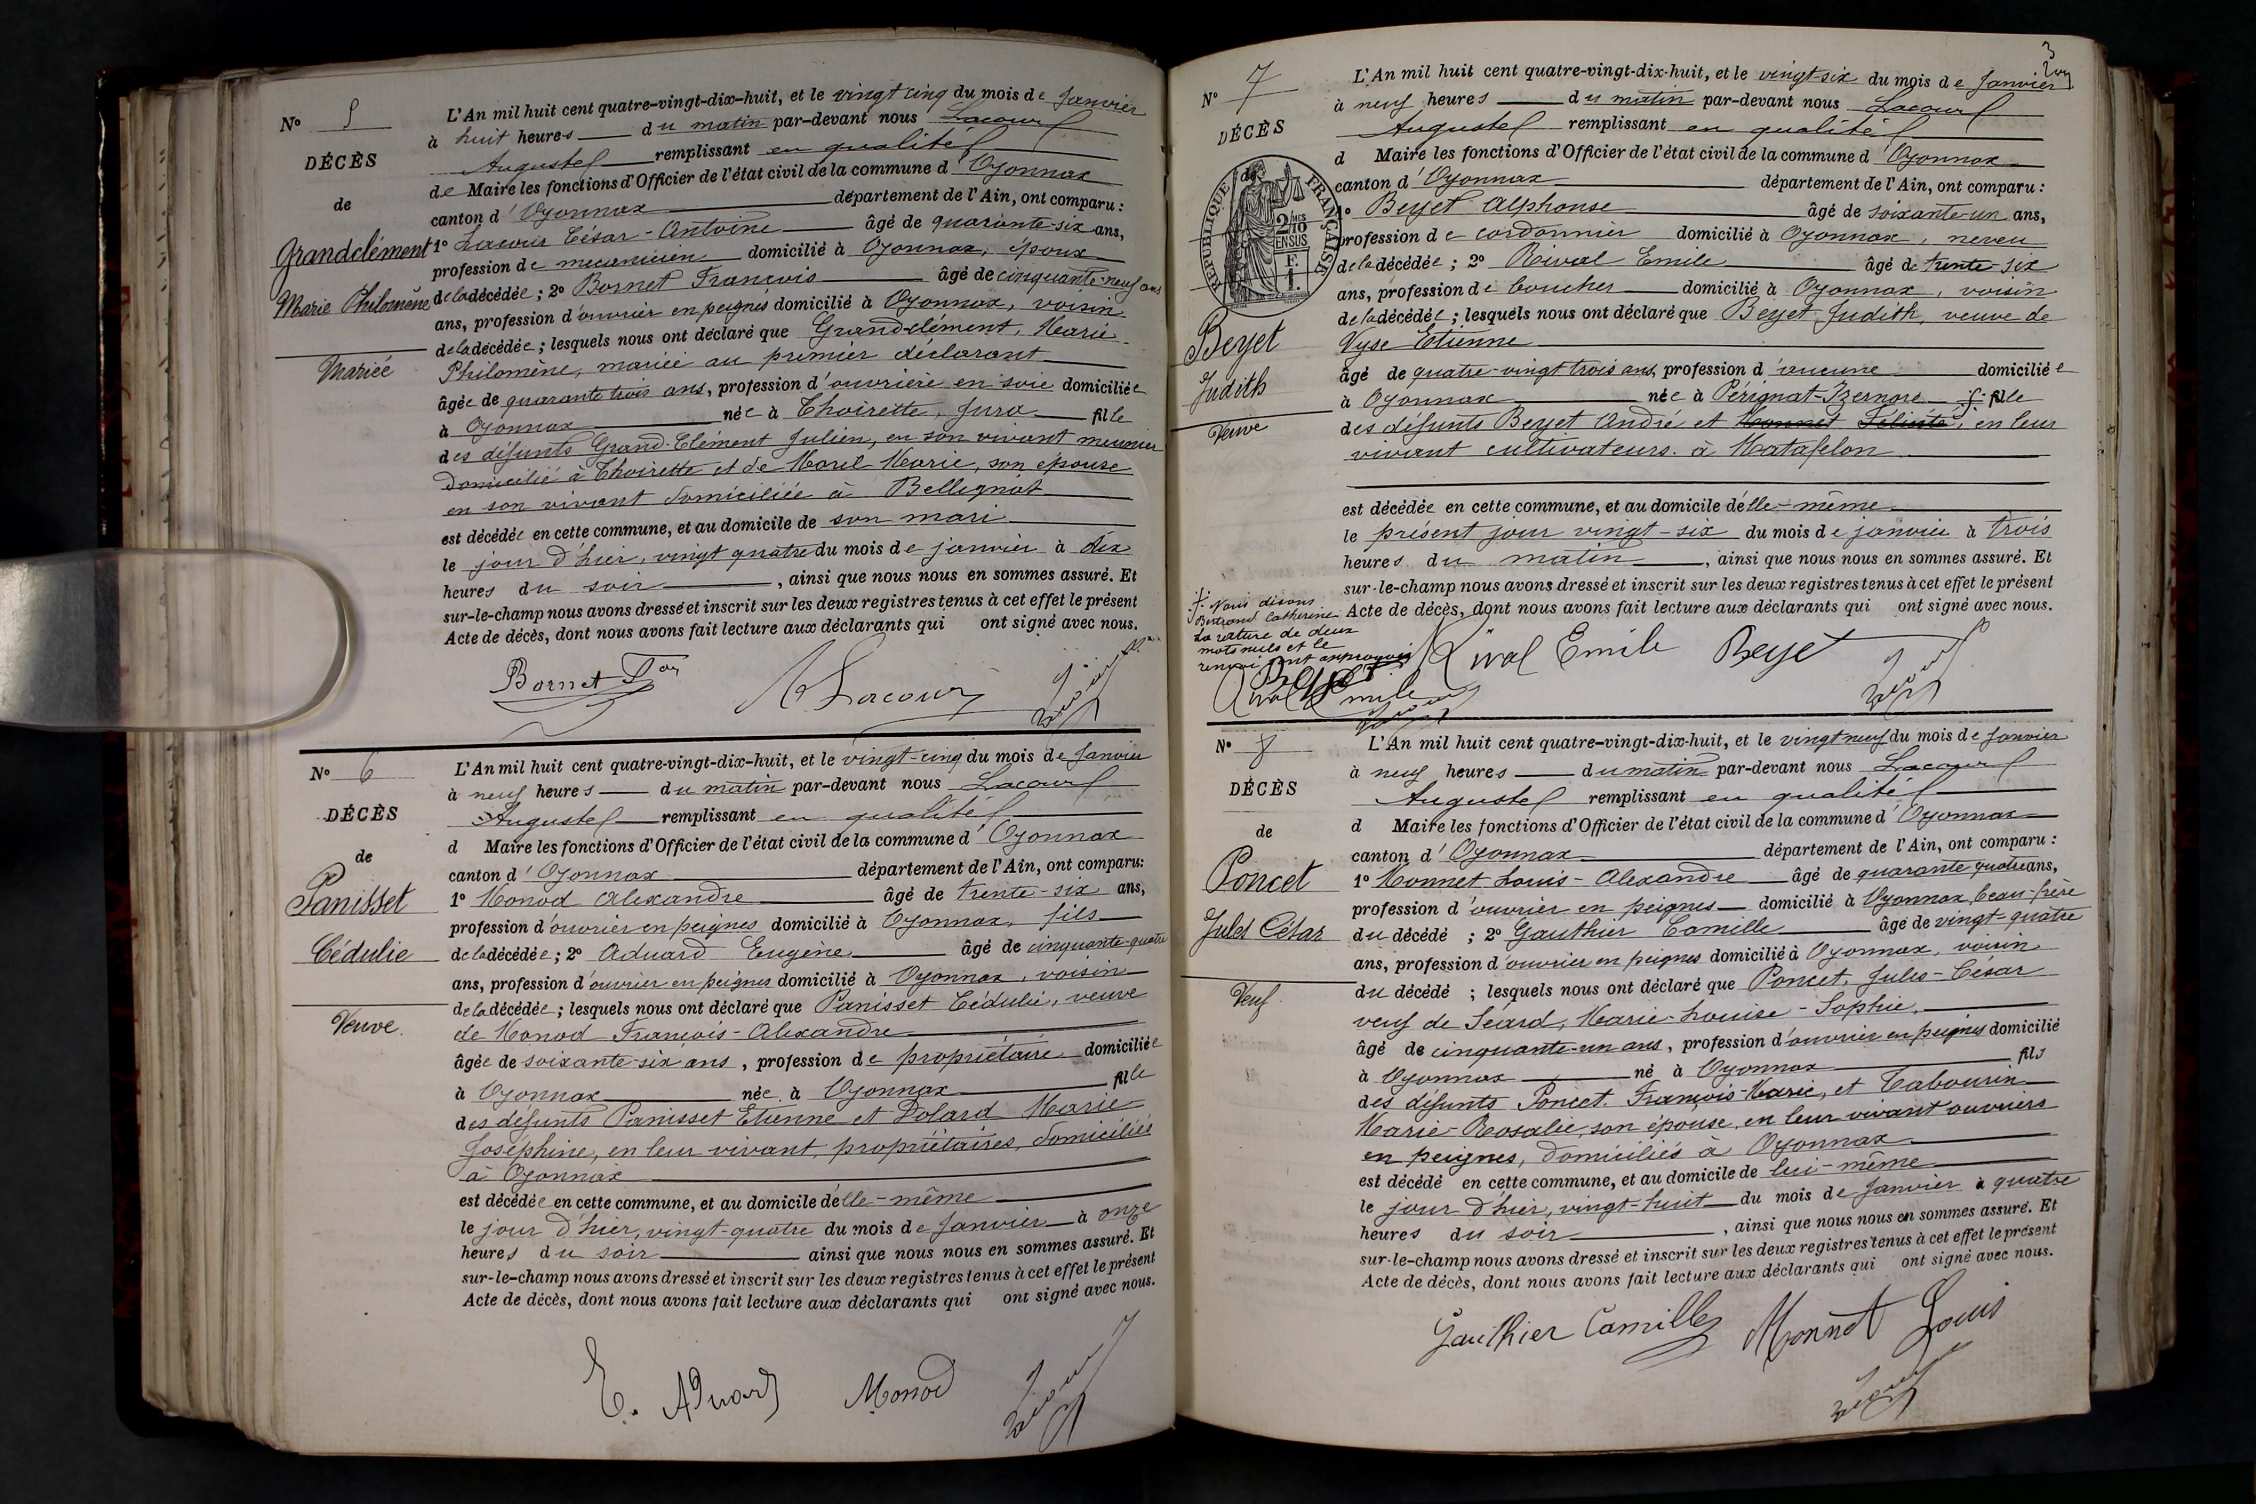 N° 5
DÉCÈS
de
Grandclément
Marie Philomène
Mariée
L'An mil huit cent quatre-vingt-dix-huit, et le vingt cinq du mois de Janvier
à huit heures du matin par-devant nous Lacour
Auguste remplissant en qualité
de Maire les fonctions d'Officier de l'état civil de la commune d'Oyonnax
canton d'Oyonnax département de l'Ain, ont comparu :
1° Lacour César-Antoine âgé de quarante-six ans,
profession de mecanicien domicilié à Oyonnax, époux
de la décédée ; 2° Bornet François âgé de cinquante-neuf ans
ans, profession d'ouvrier en peignes domicilié à Oyonnax, voisin
de la décédée ; lesquels nous ont déclaré que Grandclément, Marie
Philomène, mariée au premier déclarant
âgée de quarante trois ans, profession d'ouvrière en soie domiciliée
à Oyonnax née à Thoirette, Jura fille
des défunts Grand-Clément Julien, en son vivant meunier
domicilié à Thoirette et de Morel Marie, son épouse
en son vivant domiciliée à Bellignat
est décédée en cette commune, et au domicile de son mari
le jour d'hier, vingt quatre du mois de janvier à dix
heures du soir, ainsi que nous nous en sommes assuré. Et
sur-le-champ nous avons dressé et inscrit sur les deux registres tenus à cet effet le présent
Acte de décès, dont nous avons fait lecture aux déclarants qui ont signé avec nous.
Bornet Fois Lacour
N° 6
DÉCÈS
de
Panisset
Cédulie
Veuve.
L'An mil huit cent quatre-vingt-dix-huit, et le vingt-cinq du mois de Janvier
à neuf heures du matin par-devant nous Lacour
Auguste remplissant en qualité
d Maire les fonctions d'Officier de l'état civil de la commune d'Oyonnax
canton d'Oyonnax département de l'Ain, ont comparu:
1° Monod Alexandre âgé de trente-six ans,
profession d'ouvrier en peignes domicilié à Oyonnax, fils
de la décédée ; 2° Aduard Eugène âgé de cinquante-quatre
ans, profession d'ouvrier en peignes domicilié à Oyonnax, voisin
de la décédée ; lesquels nous ont déclaré que Panisset Cédulie, veuve
de Monod François-Alexandre
âgée de soixante-six ans, profession de propriétaire domiciliée
à Oyonnax née à Oyonnax fille
des défunts Panisset Etienne et Polard Marie
Joséphine, en leur vivant, propriétaires, domiciliés
à Oyonnax
est décédée en cette commune, et au domicile d'elle-même
le jour d'hier, vingt-quatre du mois de Janvier à onze
heures du soir ainsi que nous nous en sommes assuré. Et
sur-le-champ nous avons dressé et inscrit sur les deux registres tenus à cet effet le présent
Acte de décès, dont nous avons fait lecture aux déclarants qui ont signé avec nous.
E. Aduard Monod
3
N° 7
DÉCÈS
de
RÉPUBLIQUE FRANÇAISE
2/10 EN SUS
1 F.
Beyet
Judith
Veuve
L'An mil huit cent quatre-vingt-dix-huit, et le vingt-six du mois de Janvier
à neuf heures du matin par-devant nous Lacour
Auguste remplissant en qualité
d Maire les fonctions d'Officier de l'état civil de la commune d'Oyonnax
canton d'Oyonnax département de l'Ain, ont comparu :
1° Beyet Alphonse âgé de soixante-un ans,
profession de cordonnier domicilié à Oyonnax, neveu
de la décédée ; 2° Rival Emile âgé de trente-six
ans, profession de boucher domicilié à Oyonnax, voisin
de la décédée ; lesquels nous ont déclaré que Beyet Judith, veuve de
Vyse Etienne
âgé de quatre-vingt trois ans, profession d'aucune domiciliée
à Oyonnax née à Pérignat-Izernore fille
des défunts Beyet André et Monnet Félicité, en leur
vivant cultivateurs à Matafelon
est décédée en cette commune, et au domicile d'elle-même
le présent jour vingt-six du mois de janvier à trois
heures du matin, ainsi que nous nous en sommes assuré. Et
sur-le-champ nous avons dressé et inscrit sur les deux registres tenus à cet effet le présent
Acte de décès, dont nous avons fait lecture aux déclarants qui ont signé avec nous.
Nous disons
Bertrand Catherine
La rature de deux
mots nuls et le
renvoi sont approuvés
Rival Emile Beyet
Beyet
Rival Emile
N° 8
DÉCÈS
de
Poncet
Jules César
Veuf
L'An mil huit cent quatre-vingt-dix-huit, et le vingt neuf du mois de Janvier
à neuf heures du matin par-devant nous Lacour
Auguste remplissant en qualité
d Maire les fonctions d'Officier de l'état civil de la commune d'Oyonnax
canton d'Oyonnax département de l'Ain, ont comparu :
1° Monnet Louis-Alexandre âgé de quarante quatre ans,
profession d'ouvrier en peignes domicilié à Oyonnax, beau-frère
du décédé ; 2° Gauthier Camille âgé de vingt-quatre
ans, profession d'ouvrier en peignes domicilié à Oyonnax, voisin
du décédé ; lesquels nous ont déclaré que Poncet, Jules-César
veuf de Séard, Marie-Louise-Sophie,
âgé de cinquante-un ans, profession d'ouvrier en peignes domicilié
à Oyonnax né à Oyonnax fils
des défunts Poncet François-Marie, et Tabourin
Marie-Rosalie, son épouse, en leur vivant ouvriers
en peignes, domiciliés à Oyonnax
est décédé en cette commune, et au domicile de lui-même
le jour d'hier, vingt-huit du mois de Janvier à quatre
heures du soir, ainsi que nous nous en sommes assuré. Et
sur-le-champ nous avons dressé et inscrit sur les deux registres tenus à cet effet le présent
Acte de décès, dont nous avons fait lecture aux déclarants qui ont signé avec nous.
Gauthier Camille Monnet Louis